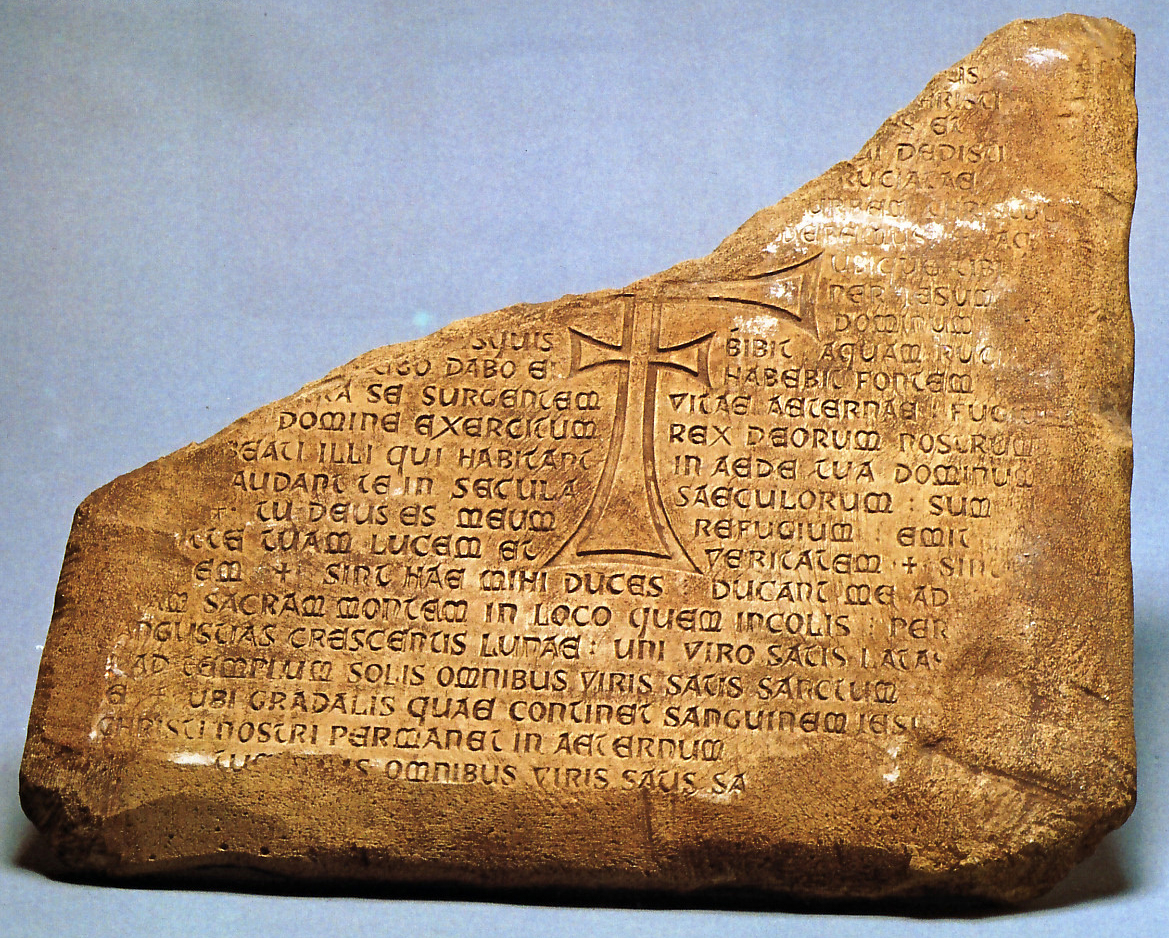 US
RISTI
S ET
UI DEDISTI
RUCIATAE
URBEM
UBIQUE TIBI
PER IESUM
DOMINUM
SQUIS BIBIT AQUAM
EGO DABO EI HABEBIT FONTEM
TA SE SURGENTEM VITAE AETERNAE :
DOMINE EXERCITUM REX DEORUM NOSTRUM
BEATI ILLI QUI HABITANT IN AEDE TUA DOMINUM
AUDANT TE IN SECULA SAECULORUM : SUM
+ TU DEUS ES MEUM REFUGIUM : EMIT
TTE TUAM LUCEM ET VERITATEM + SINT
EM + SINT HAE MIHI DUCES : DUCANT ME AD
AM SACRAM MONTEM IN LOCO QUEM INCOLIS : PER
NGUSTIAS CRESCENTIS LUNAE : UNI VIRO SATIS LATAS
AD TEMPLUM SOLIS OMNIBUS VIRIS SATIS SANCTUM
E + UBI GRADALIS QUAE CONTINET SANGUINEM IESU
CHRISTI NOSTRI PERMANET IN AETERNUM
OMNIBUS VIRIS SATIS SA